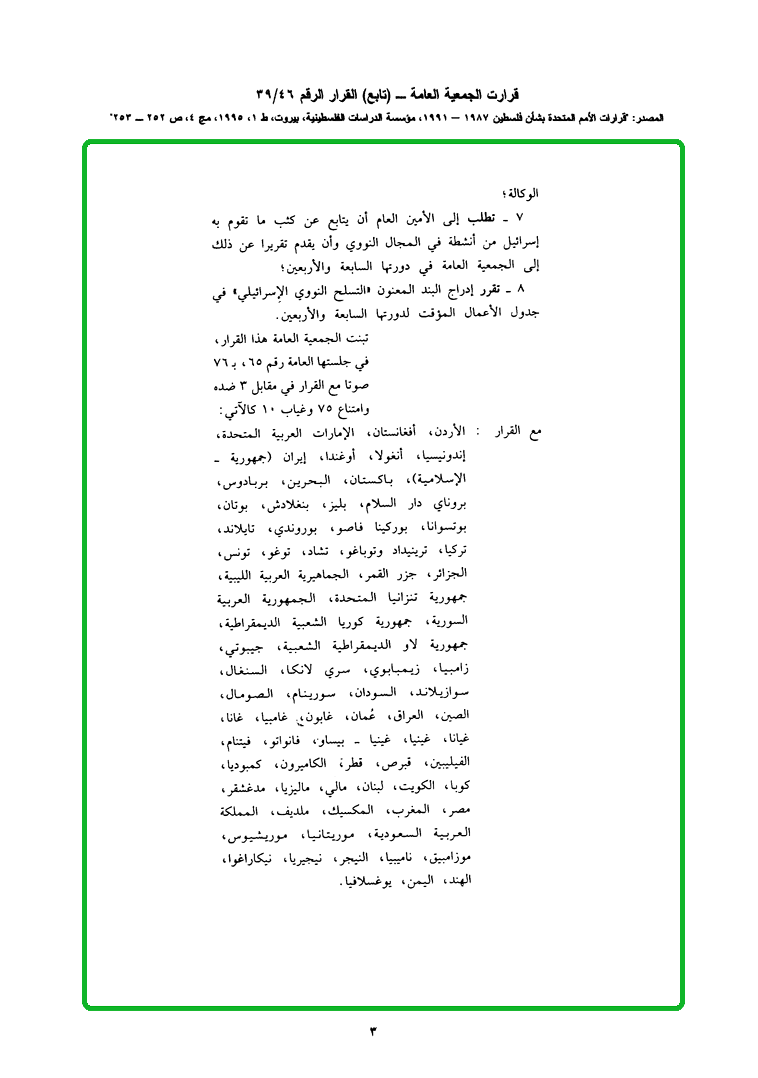 قرارت الجمعية العامة ــ (تابع) القرار الرقم ٣٩/٤٦
المصدر: "قرارات الأمم المتحدة بشأن فلسطين ١٩٨٧ – ١٩٩١، مؤسسة الدراسات الفلسطينية، بيروت، ط ١، ١٩٩٥، مج ٤، ص ٢٥٢ ــ ٢٥٣"
الوكالة؛
٧ ـ تطلب إلى الأمين العام أن يتابع عن كثب ما تقوم به
إسرائيل من أنشطة في المجال النووي وأن يقدم تقريرا عن ذلك
إلى الجمعية العامة في دورتها السابعة والأربعين؛
٨ ـ تقرر إدراج البند المعنون «التسلح النووي الإسرائيلي» في
جدول الأعمال المؤقت لدورتها السابعة والأربعين.
تبنت الجمعية العامة هذا القرار،
في جلستها العامة رقم ٦٥، بـ ٧٦
صوتا مع القرار في مقابل ٣ ضده
وامتناع ٧٥ وغياب ١٠ كالآتي:
مع القرار : الأردن، أفغانستان، الإمارات العربية المتحدة،
إندونيسيا، أنغولا، أوغندا، إيران (جمهورية ـ
الإسلامية)، باكستان، البحرين، بربادوس،
بروناي دار السلام، بليز، بنغلادش، بوتان،
بوتسوانا، بوركينا فاصو، بوروندي، تايلاند،
تركيا، ترينيداد وتوباغو، تشاد، توغو، تونس،
الجزائر، جزر القمر، الجماهيرية العربية الليبية،
جمهورية تنزانيا المتحدة، الجمهورية العربية
السورية، جمهورية كوريا الشعبية الديمقراطية،
جمهورية لاو الديمقراطية الشعبية، جيبوتي،
زامبيا، زيمبابوي، سري لانكا، السنغال،
سوازيلاند، السودان، سورينام، الصومال،
الصين، العراق، عُمان، غابون، غامبيا، غانا،
غيانا، غينيا، غينيا ـ بيساو، فانواتو، فيتنام،
الفيليبين، قبرص، قطر، الكاميرون، كمبوديا،
كوبا، الكويت، لبنان، مالي، ماليزيا، مدغشقر،
مصر، المغرب، المكسيك، ملديف، المملكة
العربية السعودية، موريتانيا، موريشيوس،
موزامبيق، ناميبيا، النيجر، نيجيريا، نيكاراغوا،
الهند، اليمن، يوغسلافيا.
٣